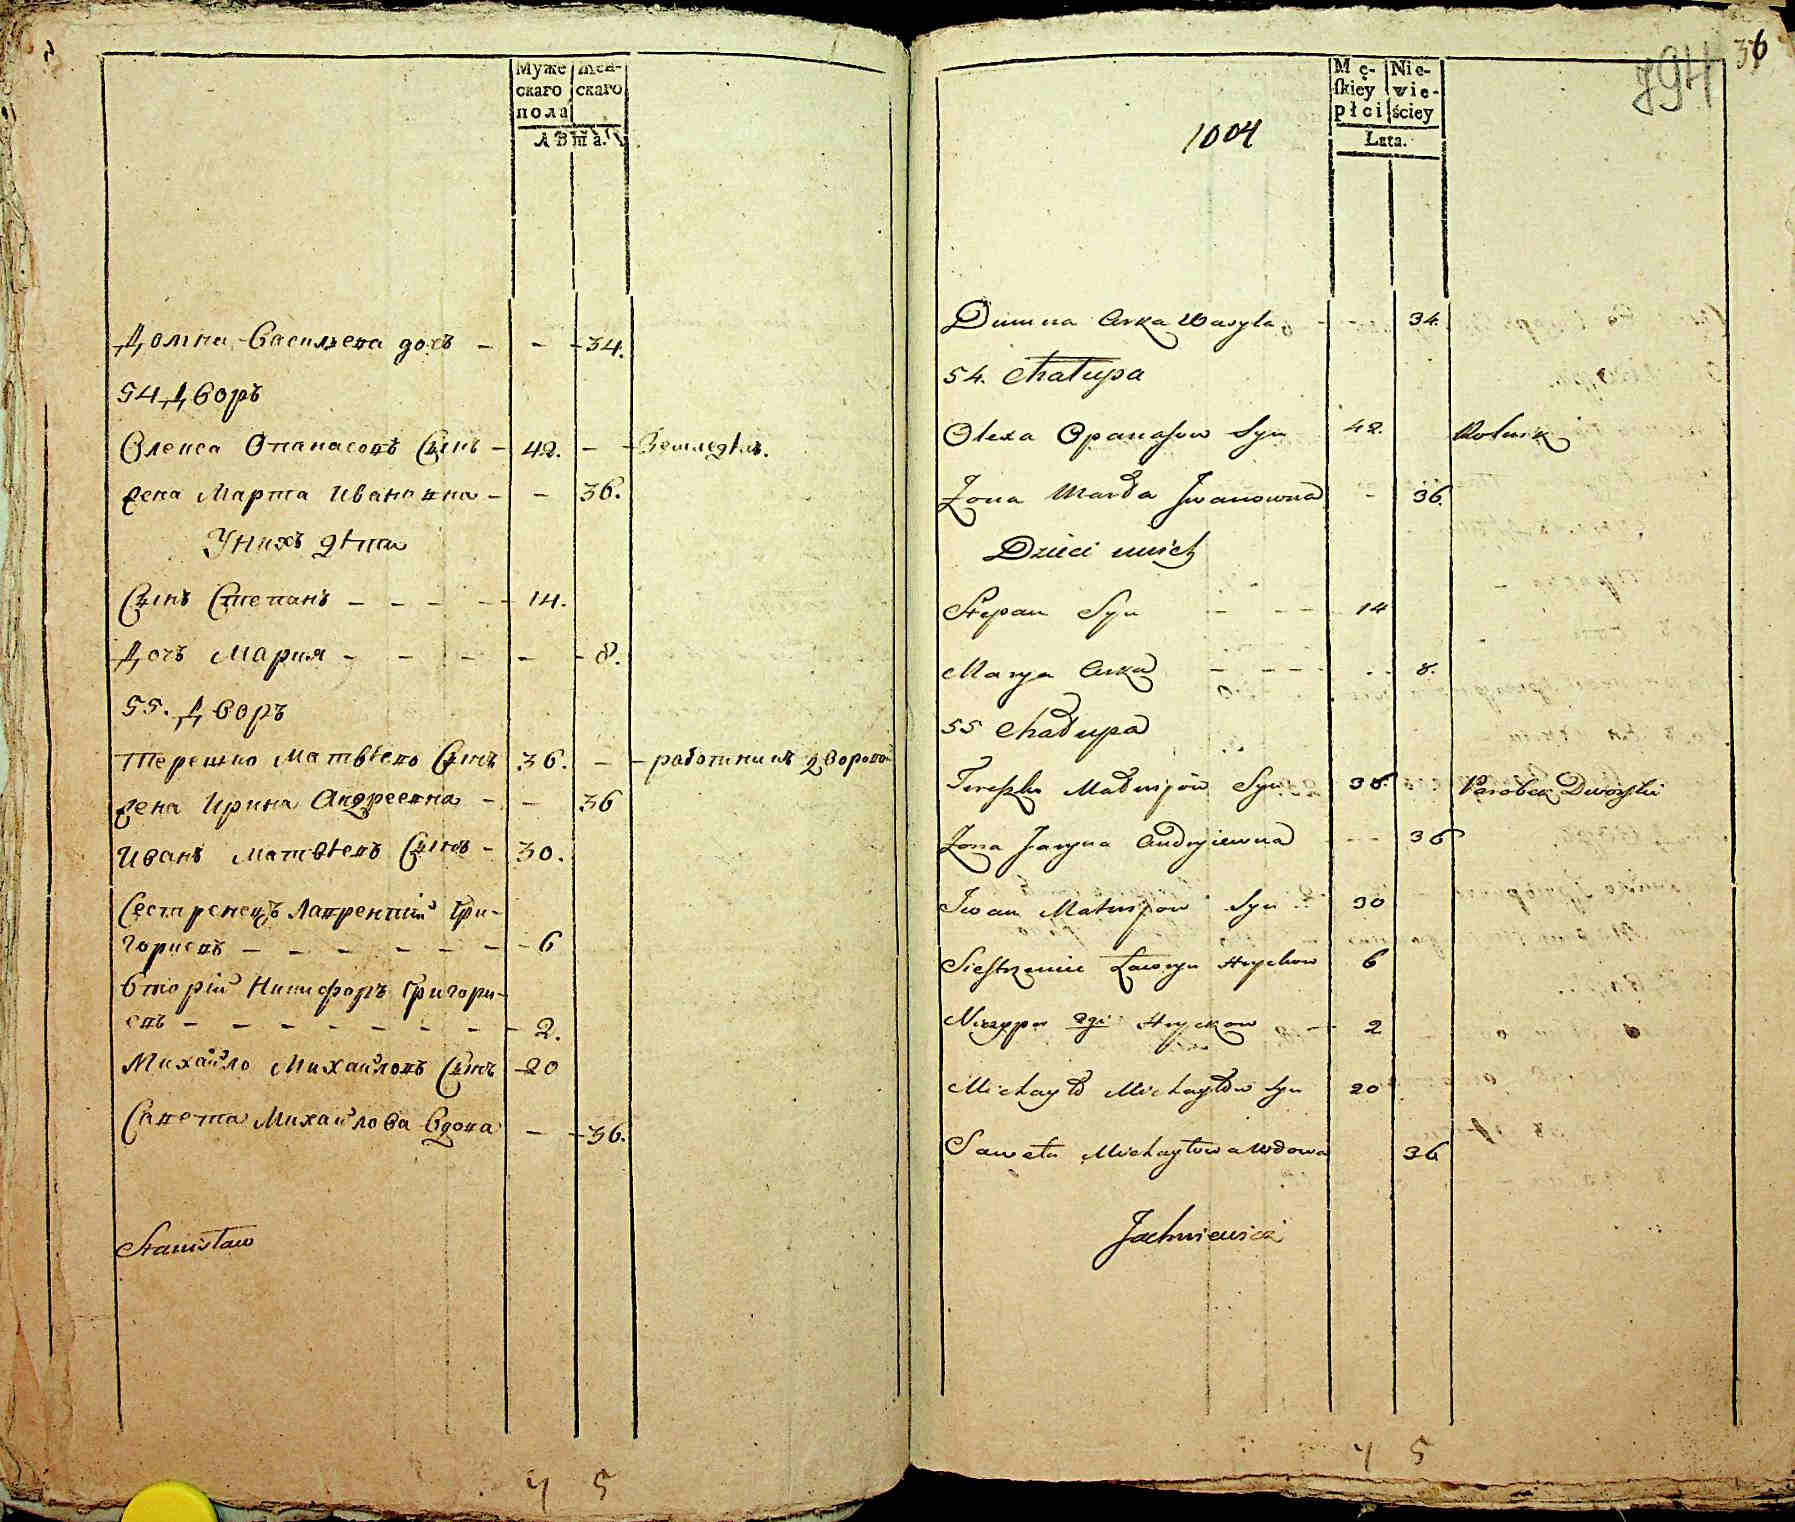 Муже Жен-
скаго скаго
пола
Лѣта.
Домна Васильева дочь - - - 34.
54 Дворъ
Олекса Опанасовъ Сынъ - 42. - - Земледѣл.
жена Марта Ивановна - - 36.
У нихъ дѣти
Сынъ Степанъ - - - - - 14.
Дочь Мария - - - - - 8.
55. Дворъ
Терешко Матвѣевъ Сынъ 36. - - работникъ дворовой
жена Ирина Андреевна - - 36
Иванъ Матвѣевъ Сынъ - 30.
Сестренецъ Лаврентий Гри-
гориевъ - - - - - - - 6
вторiй Никифоръ Григори-
евъ - - - - - - - - 2.
Михайло Михайловъ Сынъ - 20
Савета Михайлова вдова - - 36.
Stanisław
ч 5
36
794
1004
Mę- Nie-
ſkiey wie-
płci ściey
Lata.
Dumna Corka Wasyla - - 34.
54. Chałupa
Olexa Opanaſow Syn 42. Rolnik
Zona Marta Jwanowna - 36.
Dzieci u nich
Stepan Syn - - - 14
Marya Corka - - - - - - 8.
55 Chałupa
Tereſzko Matwijów Syn 36. Parobek Dworſki
Zona Jaryna Andryiewna - - - 36
Jwan Matwijow Syn 30
Sieſtrzeniec Ławryn Hryckow 6
Niczypor 2gi Hryckow - 2
Michayło Michayłow Syn 20
Saweta Michayłowa Wdowa 36
Jachniewicz
ч 5